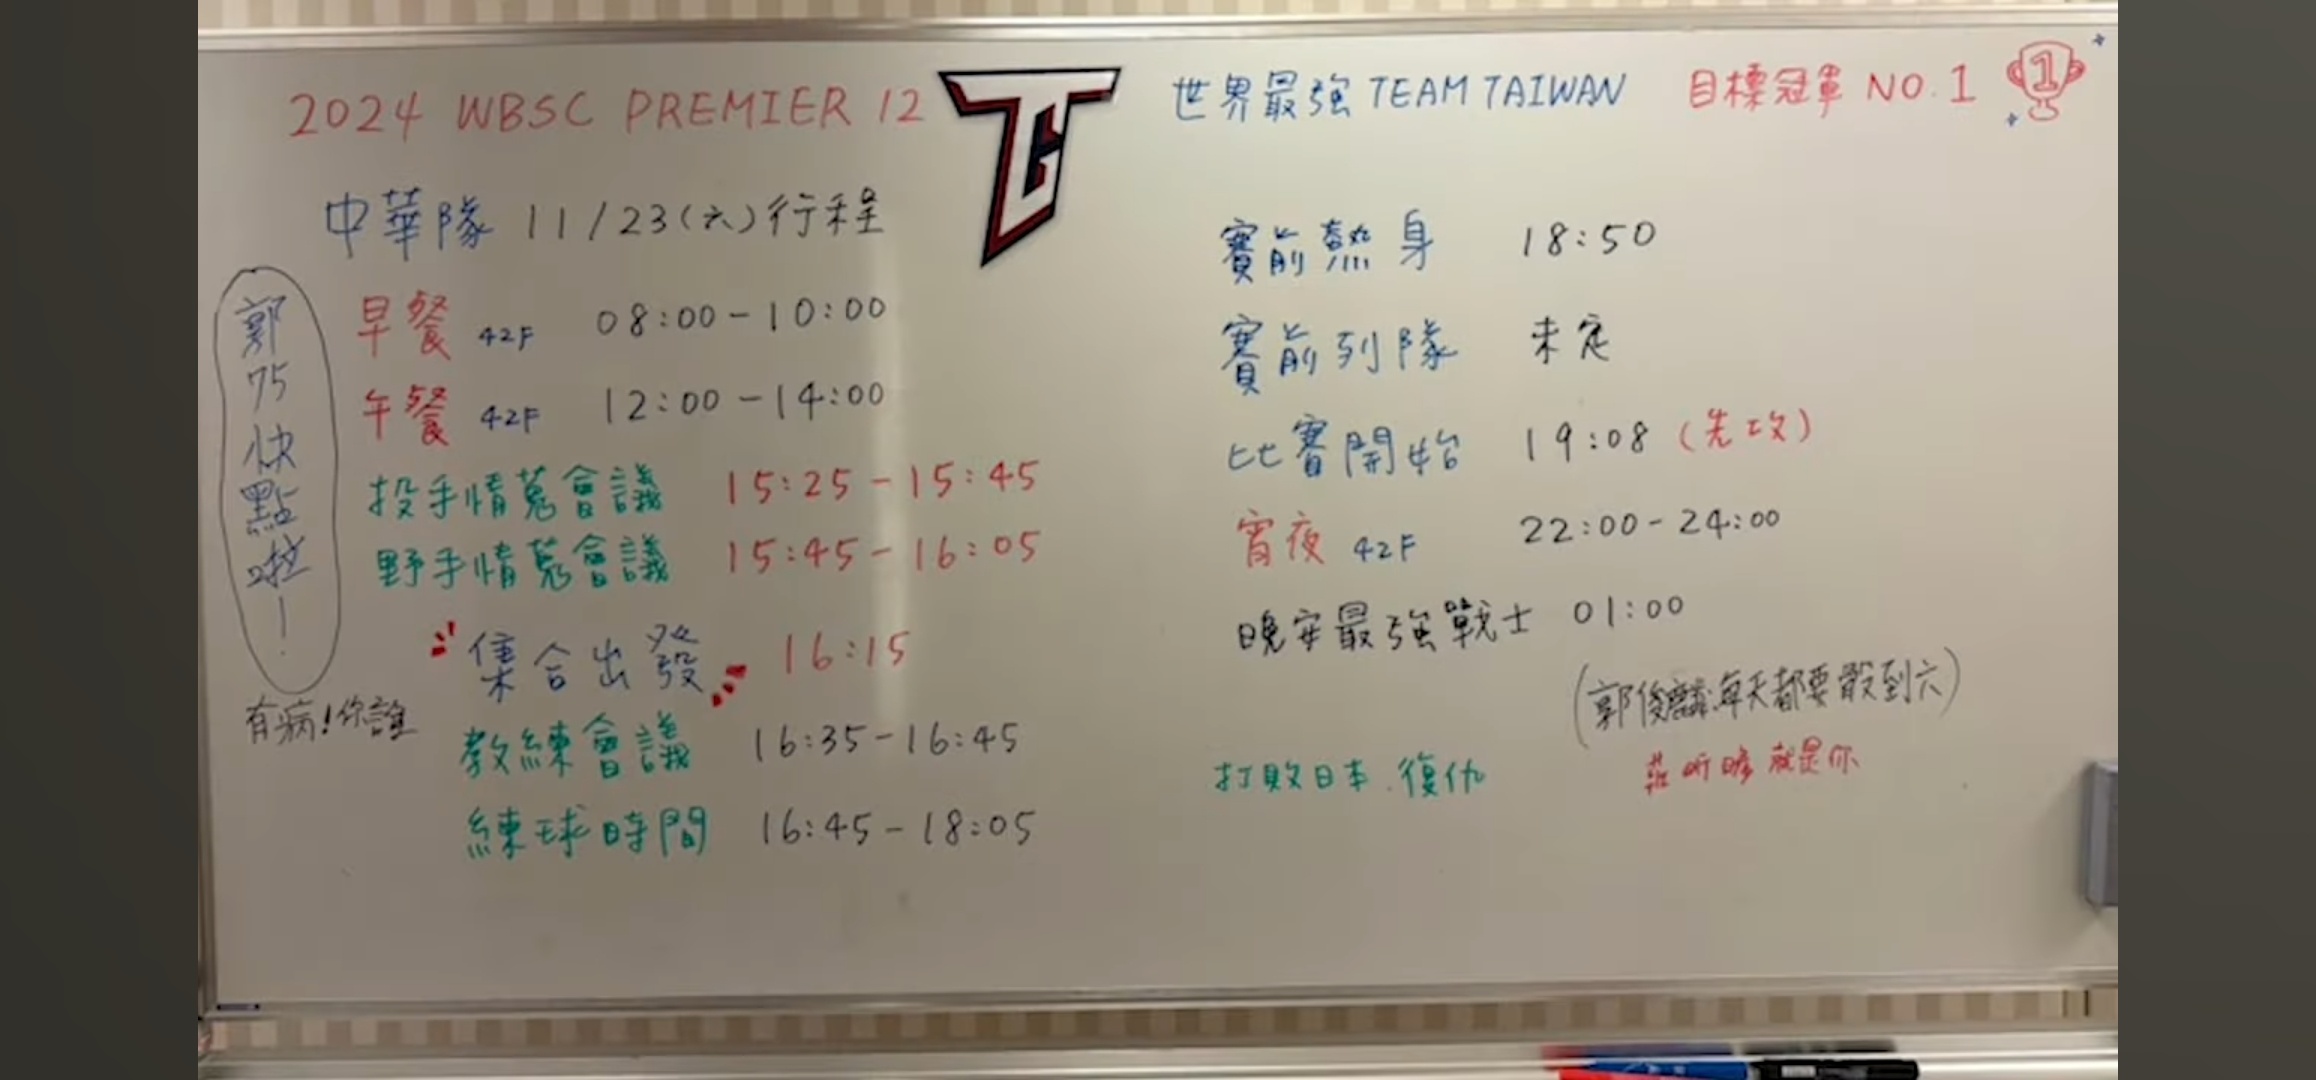 2024 WBSC PREMIER 12
世界最強 TEAM TAIWAN 目標冠軍 NO.1
1
中華隊 11/23(六)行程
早餐 42F 08:00-10:00
午餐 42F 12:00-14:00
投手情蒐會議 15:25-15:45
野手情蒐會議 15:45-16:05
集合出發 16:15
教練會議 16:35-16:45
練球時間 16:45-18:05
郭75快點啦!
有病!你誰
賽前熱身 18:50
賽前列隊 未定
比賽開始 19:08 (先攻)
宵夜 42F 22:00-24:00
晚安最強戰士 01:00
(郭俊麟每天都要骰到六)
就是你
打敗日本.復仇